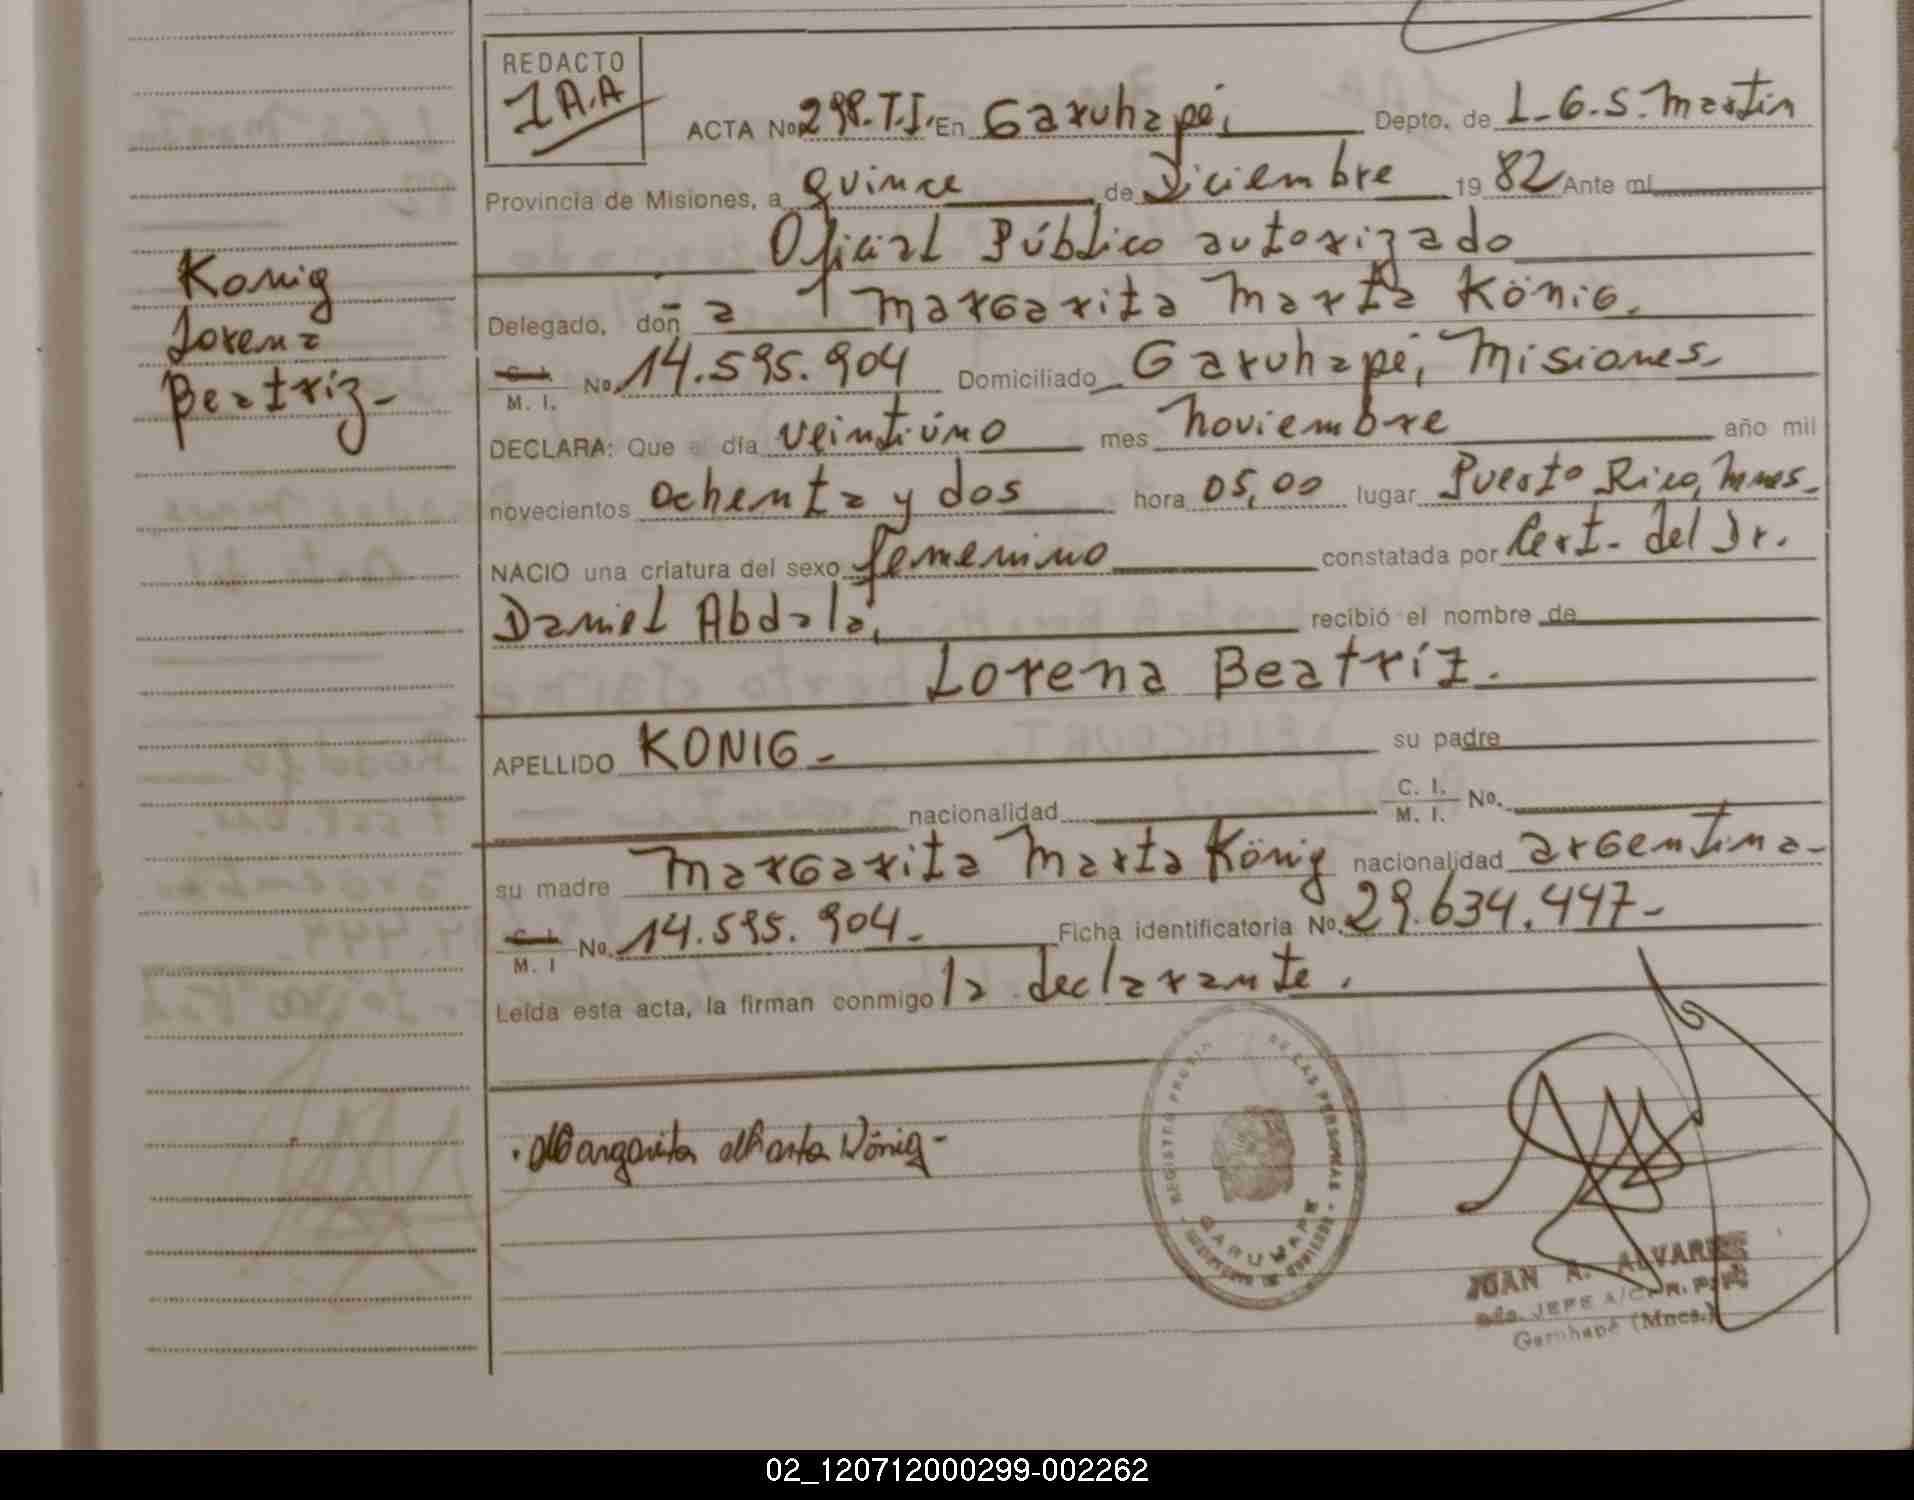 REDACTO
JA.A
ACTA No 298.T.I. En Garuhapé, Depto. de L.G.S. Martin
Provincia de Misiones, a quince de Diciembre 1982 Ante mí
Oficial Público autorizado
Konig
Lorena
Beatriz-
Delegado, doñ a Margarita Marta König.
C. I. M. I. No. 14.595.904 Domiciliado Garuhapé, Misiones
DECLARA: Que el día veintiúno mes noviembre año mil
novecientos ochenta y dos hora 05,00 lugar Puerto Rico, Mnes.
NACIO una criatura del sexo femenino constatada por Cert. del Dr.
Daniel Abdala, recibió el nombre de
Lorena Beatríz.
APELLIDO KONIG - su padre
nacionalidad C. I. M. I. No.
su madre Margarita Marta König nacionalidad argentina-
C. I. M. I No. 14.595.904- Ficha identificatoria No. 29.634.447-
Leída esta acta, la firman conmigo la declarante.
Margarita Marta König -
REGISTRO PROVIN DE LAS PERSONAS
GARUHAPE
JUAN A. ALVAREZ
JEFE A/C
Garuhapé (Mnes.)
02_120712000299-002262